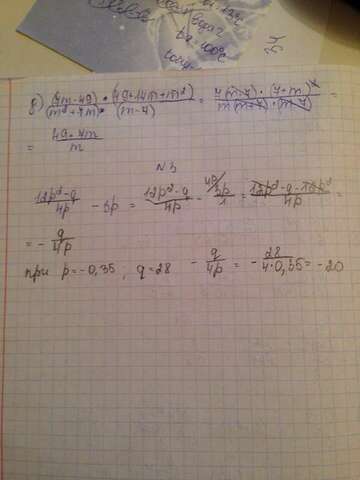 д) (7m-49)/(m³+7m²) · (49+14m+m²)/(m-7) = 7(m-7)·(7+m)²/m(m+7)·(m-7) =
= (49+7m)/m
N 3
(12p²-q)/4p - 3p = (12p²-q)/4p - 3p/1 = (12p²-q-12p²)/4p =
= - q/4p
при p=-0,35; q=28 - q/4p = - 28/4·0,35 = -20